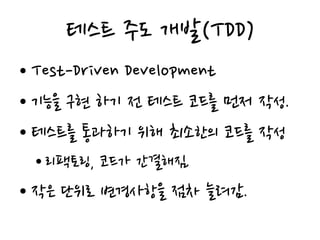 테스트 주도 개발(TDD)
• Test-Driven Development
• 기능을 구현 하기 전 테스트 코드를 먼저 작성.
• 테스트를 통과하기 위해 최소한의 코드를 작성
• 리팩토링, 코드가 간결해짐
• 작은 단위로 변경사항을 점차 늘려감.